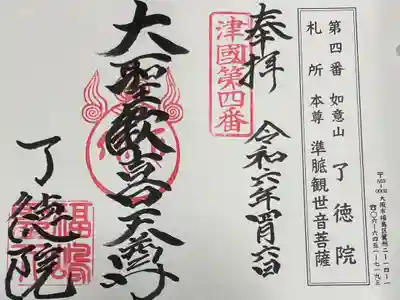 第四番 如意山 了徳院
札所 本尊 準胝観世音菩薩
〒553-0002 大阪市福島区鷺洲二ー一四ー一
☎〇六ー六四五一ー七一九三
奉拝 令和六年四月六日
津國第四番
大聖歓喜天尊
了徳院